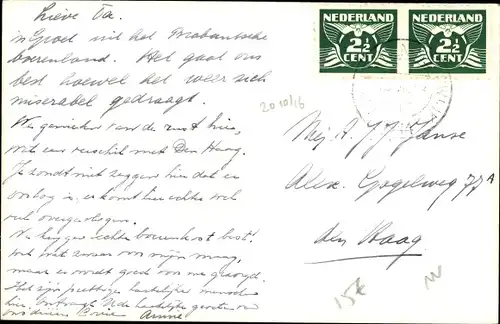 Lieve Va.
'n Groet uit het Brabantsche
boerenland. Het gaat ons
best hoewel het weer zich
miserabel gedraagt.
We genieten van de rust hier,
wat een verschil met Den Haag.
Je zoudt niet zeggen hier dat er
oorlog is, er komt hier echter wel
veel overgevlogen.
We krijgen echte boerenkost best!
maar er wordt goed voor me gezorgd.
Het zijn prettige hartelijke menschen
hier. Ontvangt U de hartelijke groeten van
ons beiden
NEDERLAND
2½
CENT
NEDERLAND
2½
CENT
2010/16
Mej. A. J. J. Janse
Alex. Gogelweg 77A
den Haag
15€